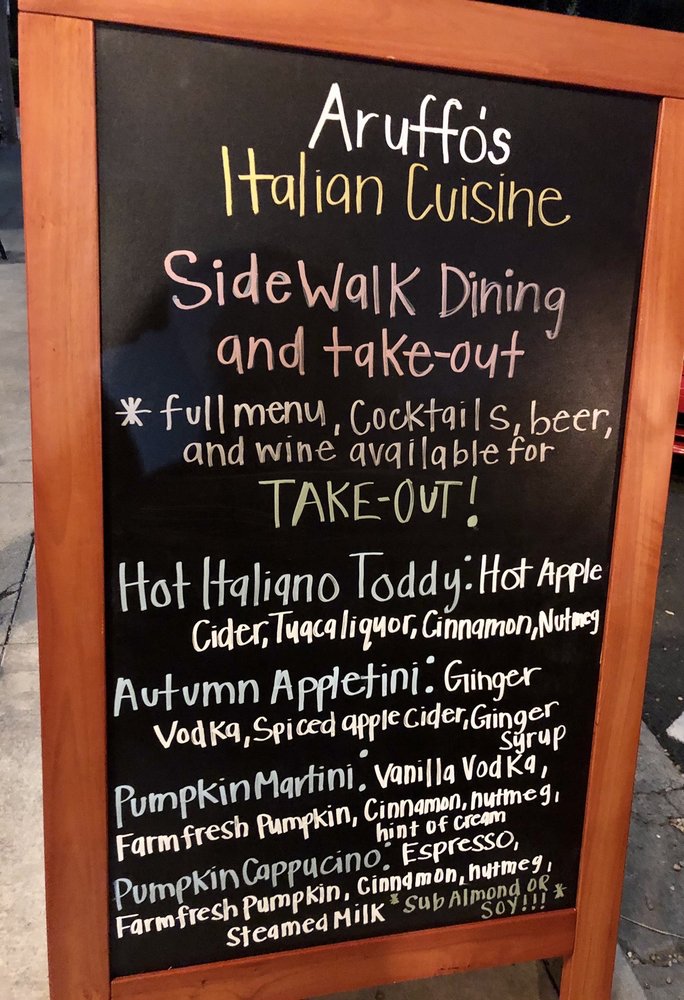 Aruffo's
Italian Cuisine
SideWalk Dining
and take-out
* full menu, Cocktails, beer,
and wine available for
TAKE-OUT!
Hot Italiano Toddy: Hot Apple
Cider, Tuaca liquor, Cinnamon, Nutmeg
Autumn Appletini: Ginger
Vodka, Spiced apple Cider, Ginger
Syrup
Pumpkin Martini: Vanilla Vodka,
Farm fresh Pumpkin, Cinnamon, nutmeg,
hint of cream
Pumpkin Cappucino: Espresso,
Farm fresh Pumpkin, Cinnamon, nutmeg,
Steamed Milk *Sub Almond OR
SOY!!! *